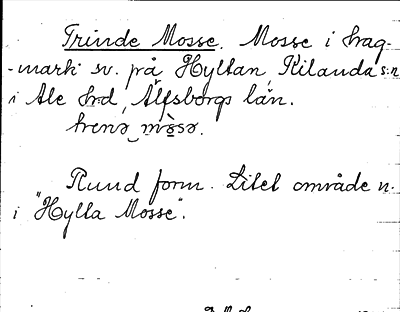 Trinde Mosse. Mosse i hag-
-mark sv. på Hyltan, Kilanda s:n
i Ale hrd, Älfsborgs län.
trenə mɔ̀sə.
Rund form. Litet område n.
i "Hylta Mosse".